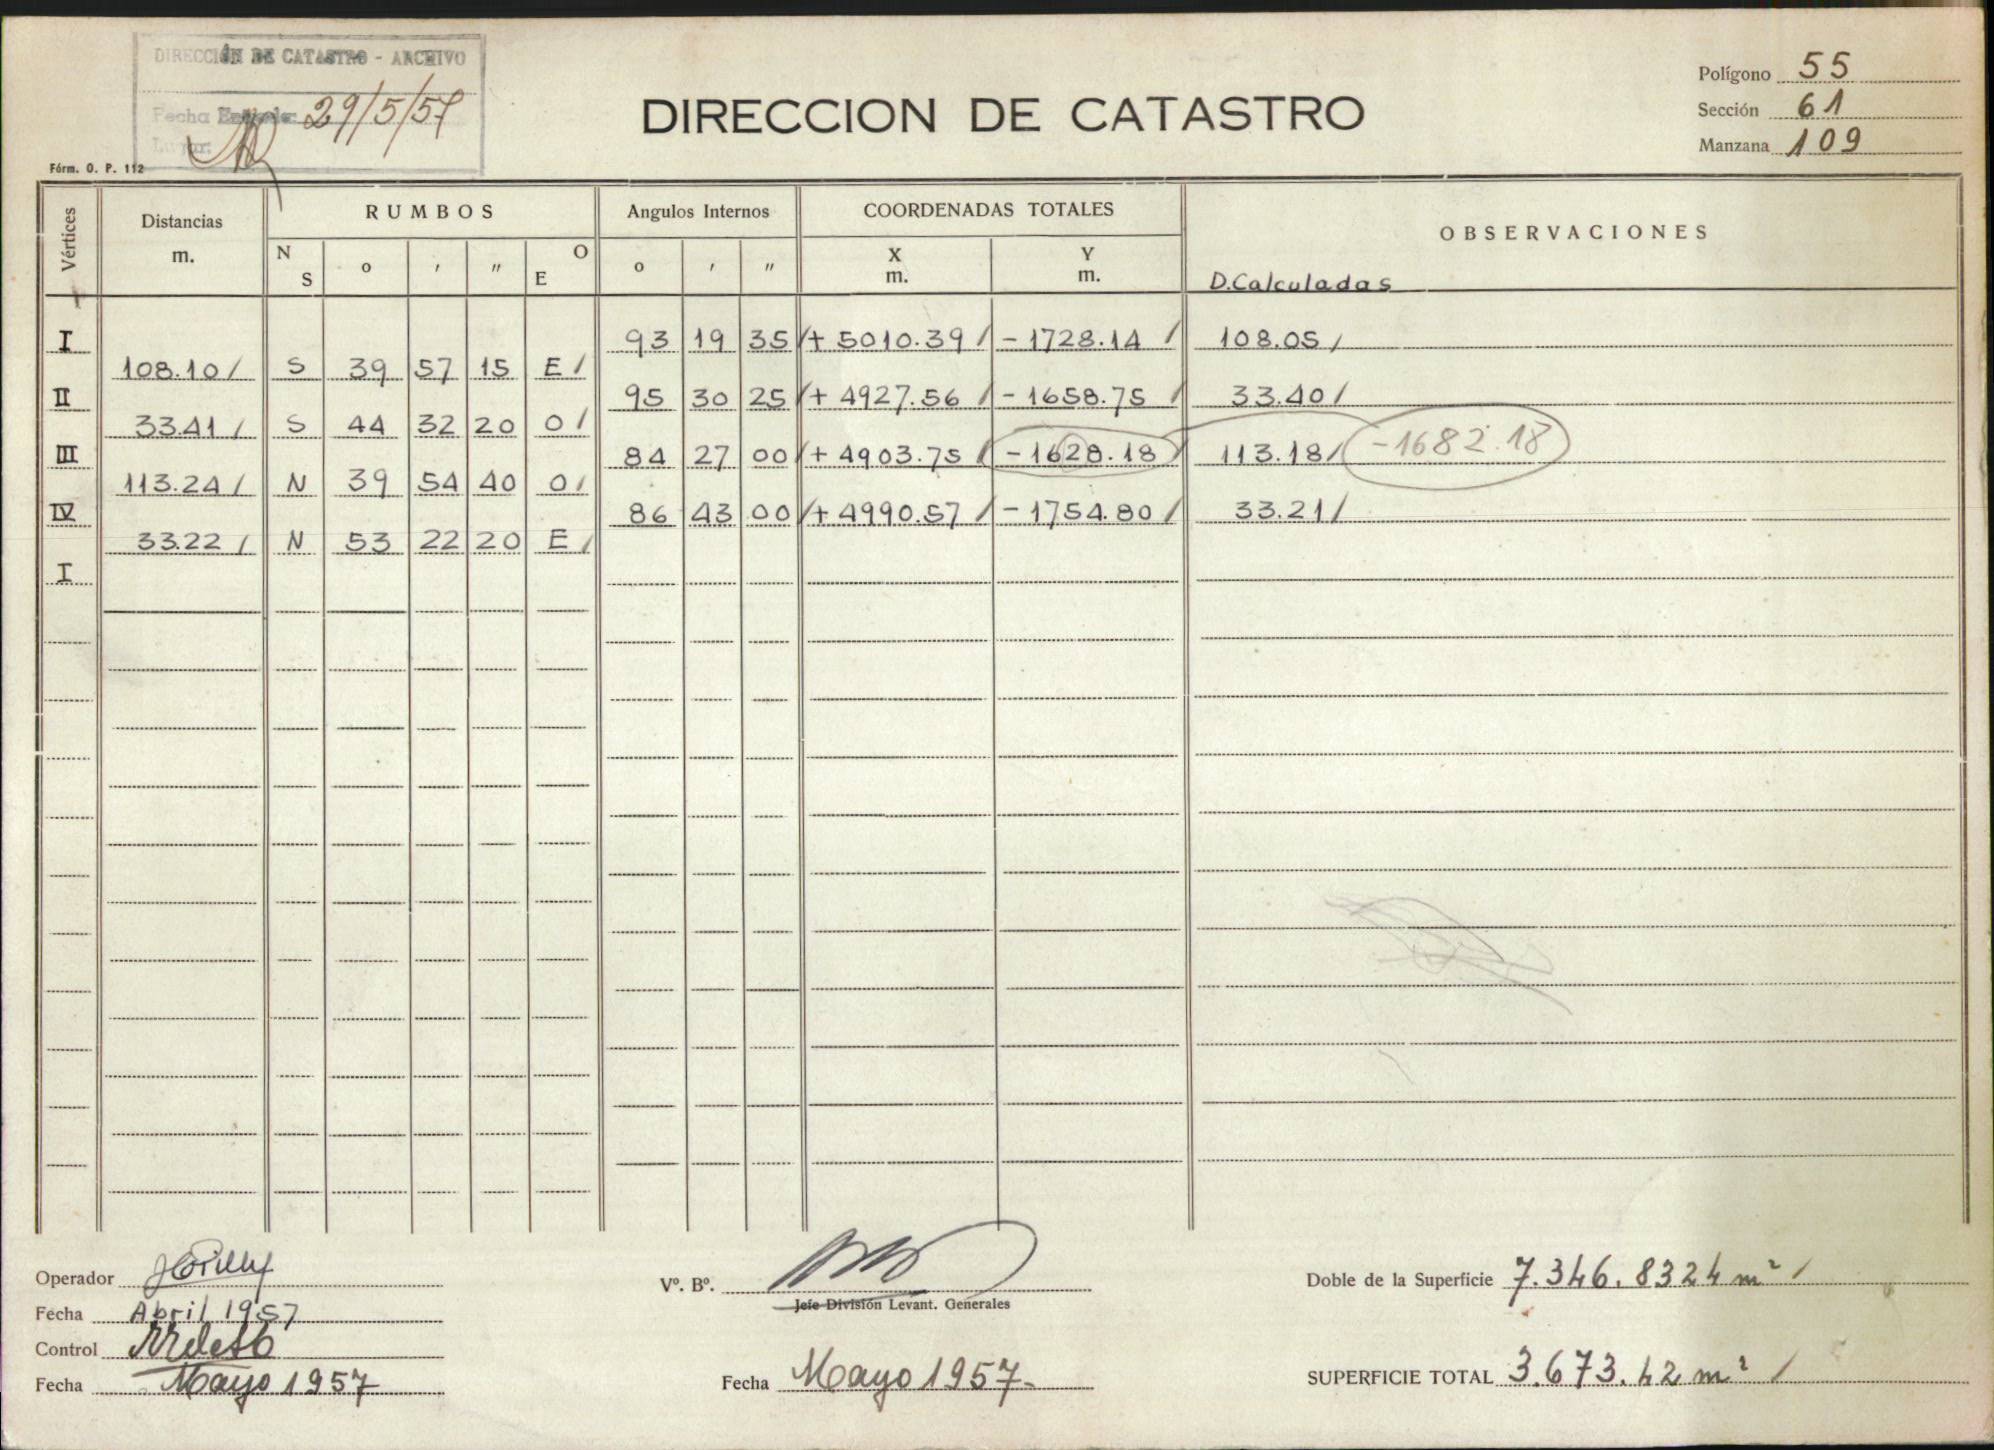 DIRECCIÓN DE CATASTRO - ARCHIVO
Fecha 29/5/57
Lugar:
Fórm. O. P. 112
DIRECCION DE CATASTRO
Polígono 55
Sección 61
Manzana 109
Vértices Distancias m. RUMBOS N S o ' " O E Angulos Internos o ' " COORDENADAS TOTALES X m. Y m. OBSERVACIONES
D.Calculadas
I 93 19 35 + 5010.39 - 1728.14 108.05
108.10 S 39 57 15 E
II 95 30 25 + 4927.56 - 1658.75 33.40
33.41 S 44 32 20 O
III 84 27 00 + 4903.75 - 1628.18 113.18 -1682.18
113.24 N 39 54 40 O
IV 86 43 00 + 4990.57 - 1754.80 33.21
33.22 N 53 22 20 E
I
Operador
Fecha Abril 1957
Control
Fecha Mayo 1957
Vº. Bº.
Jefe División Levant. Generales
Fecha Mayo 1957-
Doble de la Superficie 7.346.8324 m²
SUPERFICIE TOTAL 3.673.42 m²